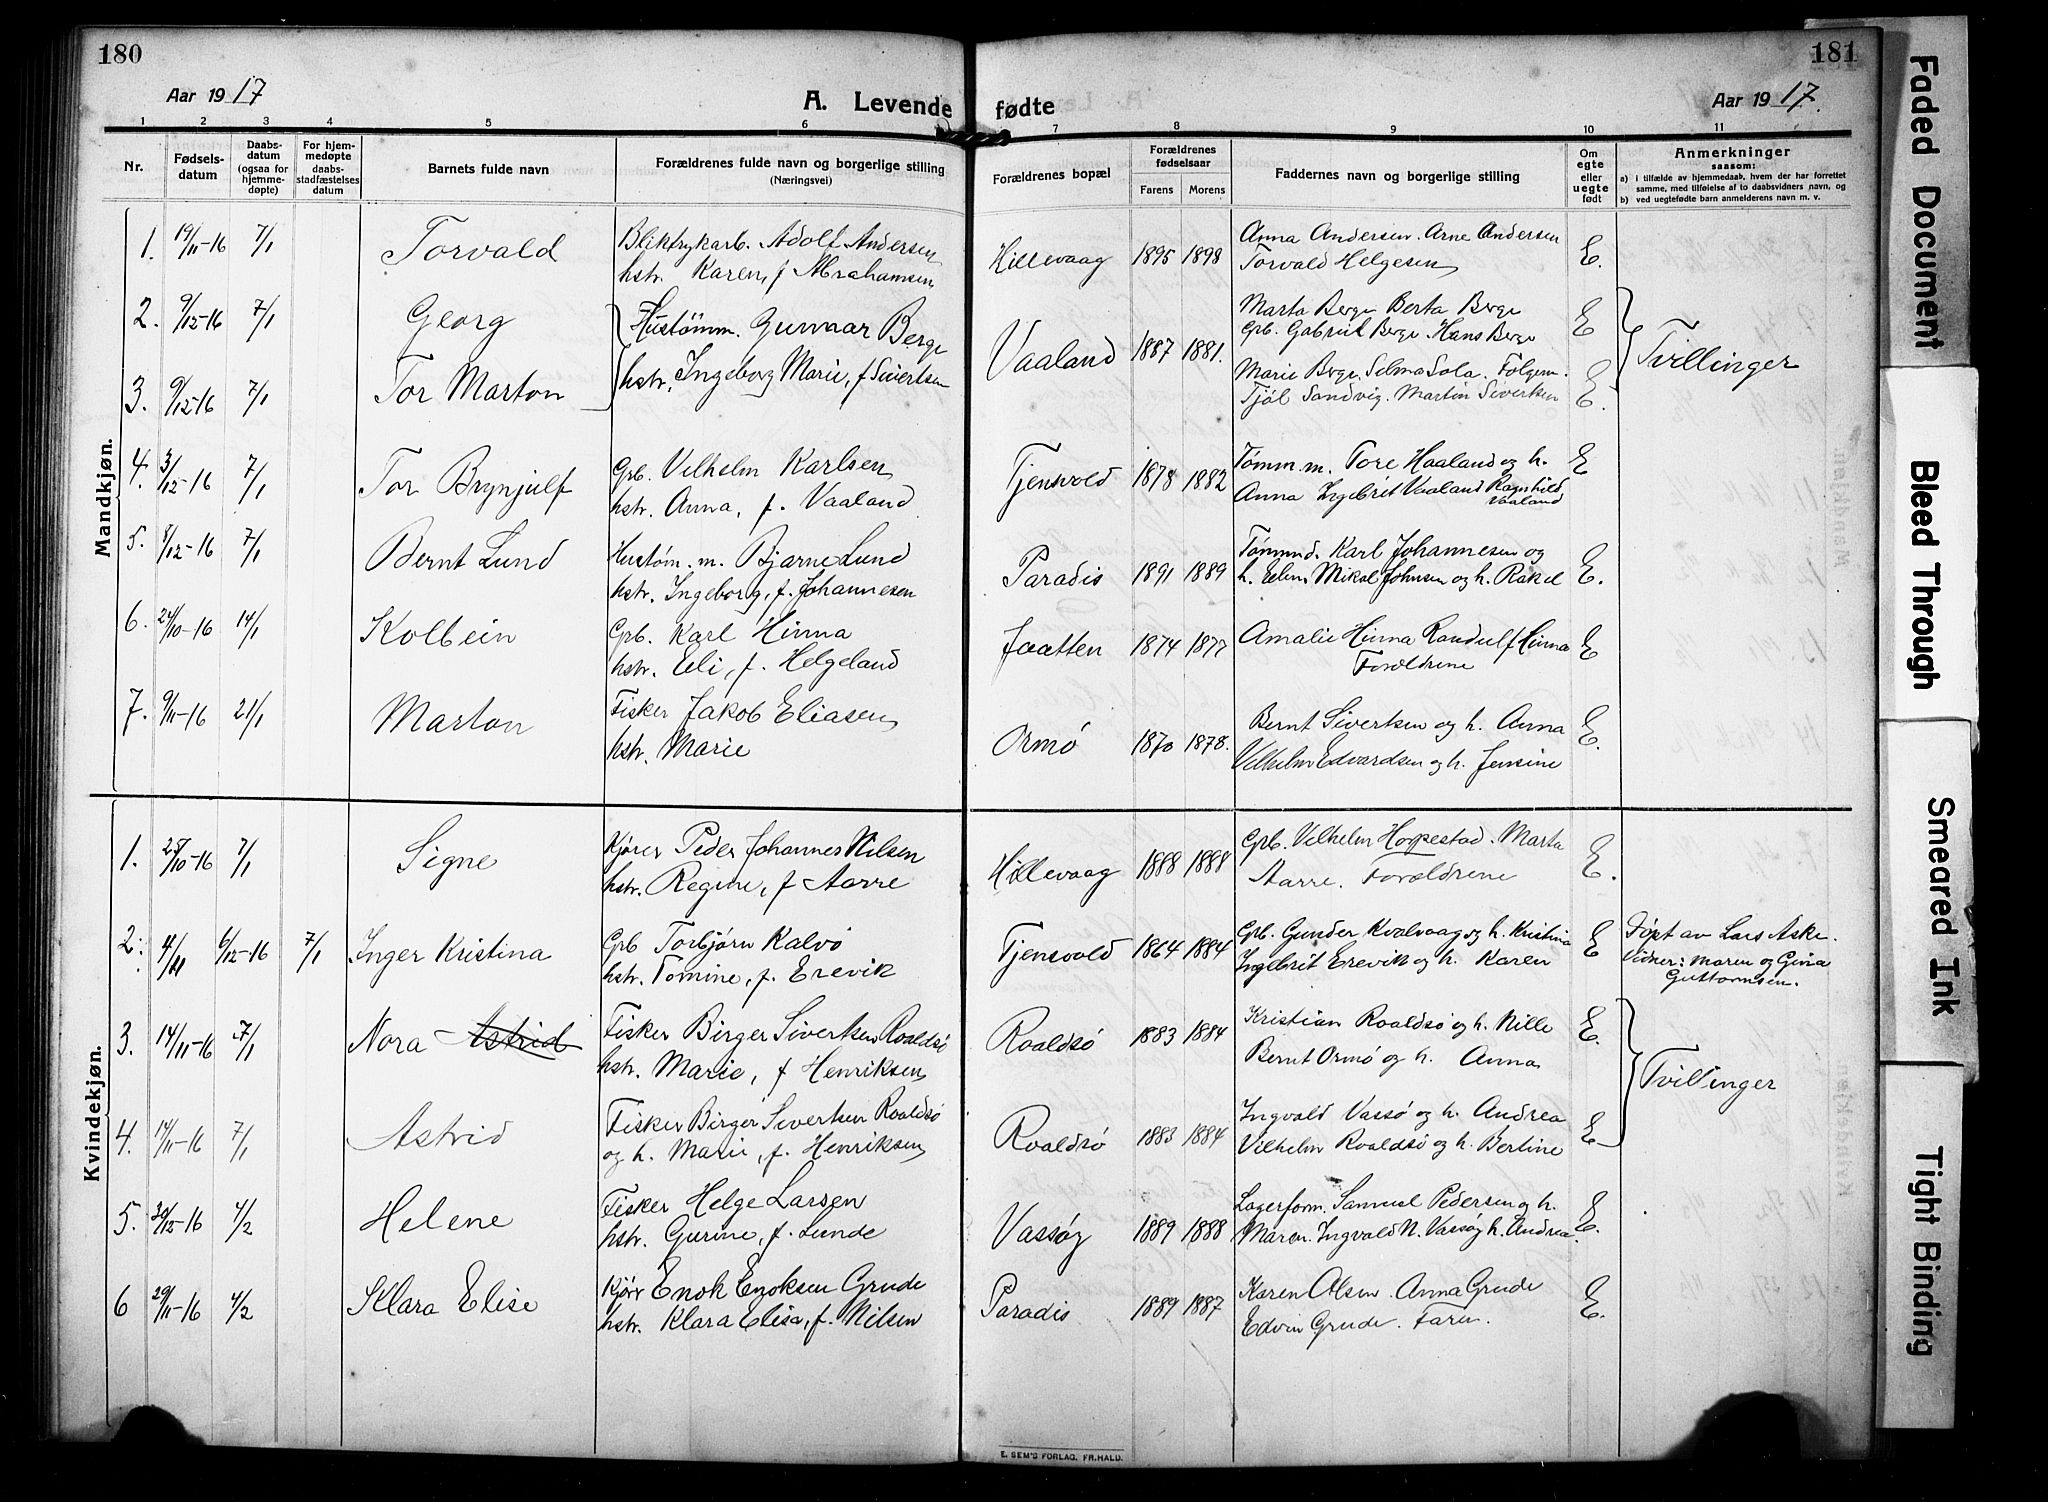 180
181
Aar 1917
A. Levende fødte
Aar 1917.
1 2 3 4 5 6 7 8 9 10 11
Nr.
Fødsels-
datum
Daabs-
datum
(ogsaa for
hjemme-
døpte)
For hjem-
medøpte
daabs-
stadfæstelses
datum
Barnets fulde navn
Forældrenes fulde navn og borgerlige stilling
(Næringsvei)
Forældrenes bopæl
Forældrenes
fødselsaar
Farens Morens
Faddernes navn og borgerlige stilling
Om
egte
eller
uegte
født
Anmerkninger
saasom:
a) i tilfælde av hjemmedaab, hvem der har forrettet
samme, med tilføielse af to daabsvidners navn, og
b) ved uegtefødte barn anmelderens navn m. v.
Mandkjøn.
1. 19/11-16 7/1 Torvald
Bliktrykarb. Adolf Andersen
hstr. Karen, f Abrahamsen
Hillevaag 1895 1898
Anna Andersen. Arne Andersen
Torvald Helgesen
E.
2. 9/12-16 7/1 Georg
Hustømm. Gunnar Berge
Marta Berge Berta Berge
Grb. Gabriel Berge Hans Berge
E
3. 9/12-16 7/1 Tor Marton
hstr. Ingeborg Marie, f Sivertsen
Vaaland 1887 1881.
Marie Berge Selma Sola.
Sandvig. Martin Sivertsen
E.
Tvillinger
4. 3/12-16 7/1 Tor Brynjulf
Grb. Vilhelm Karlsen
hstr. Anna, f. Vaaland
Tjensvold 1878 1882
Tømm.m. Tore Haaland og h.
Anna Ingebrit Vaaland Ragnhild
Vaaland
E
5. 8/12-16 7/1 Bernt Lund
Hustøm.m. Bjarne Lund
hstr. Ingeborg, f. Johannesen
Paradis 1891 1889
Karl Johannesen og
h. Elen Mikal Johnsen og h. Rakel
E.
6. 24/10-16 14/1 Kolbein
Grb. Karl Hinna
hstr. Eli, f. Helgeland
Jaatten 1874 1877
Amalie Hinna Randulf Hinna
Forældrene
E
7. 9/11-16 21/1 Marton
Fisker Jakob Eliasen
hstr. Marie
Ormø 1870 1878.
Bernt Sivertsen og h. Anna
Vilhelm Edvardsen og h. Jensine
E.
Kvindekjøn.
1. 25/10-16 7/1 Signe
Kjører Peder Johannes Nilsen
hstr. Regine, f Aarre
Hillevaag 1888 1888
Grb. Vilhelm Hoppestad. Marta
Aarre. Forældrene
E.
2. 4/11 6/12-16 7/1 Inger Kristina
Grb Torbjørn Kalvø
hstr. Tomine, f. Erevik
Tjensvold 1864 1884
Grb. Gunder Kvalvaag og h. Kristina
Ingebrit Erevik og h. Karen
E
Døpt av Lars Aske.
Vidner: Maren og Gina
Guttormsen.
3. 14/11-16 7/1 Nora Astrid
Fisker Birger Sivertsen Roaldsø
hstr. Marie, f Henriksen
Roaldsø 1883 1884
Kristian Roaldsø og h. Nille
Bernt Ormø og h. Anna
E.
Tvillinger
4. 14/11-16 7/1 Astrid
Fisker Birger Sivertsen Roaldsø
og h. Marie, f. Henriksen
Roaldsø 1883 1884
Ingvald Vassø og h. Andrea
Vilhelm Roaldsø og h. Bertine
E
5. 30/12-16 4/2 Helene
Fisker Helge Larsen
hstr. Gurine, f. Lunde
Vassøy 1889 1888
Lagerform. Samuel Pedersen og h.
Maren. Ingvald N. Vassøy h. Andrea.
E.
6 29/11-16 4/2 Klara Elise
Kjørr Enok Enoksen Grude
hstr. Klara Elisa, f. Nilsen
Paradis 1889 1887
Karen Olsen. Anna Grude
Edvin Grude. Faren.
E.
E. SEM'S FORLAG, FR.HALD.
Faded Document
Bleed Through
Smeared Ink
Tight Binding